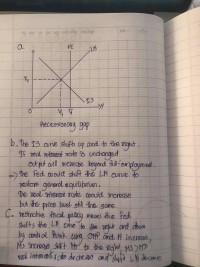 a.
r
FE
LM
r₁
IS
Y₁ Y
Y
Recessionary gap
b. The IS curve shift up and to the right.
If real interest rate is unchanged
output will increase beyond full-employment.
→ the Fed could shift the LM curve to
restore general equilibrium.
The real interest rate would increase
but the price level still the same.
C. restrictive fiscal policy mean the Fed
shifts the LM curve to the right and down
by control
M increase,
MS increase shift to the right,
real interest rate decrease and shift LM down